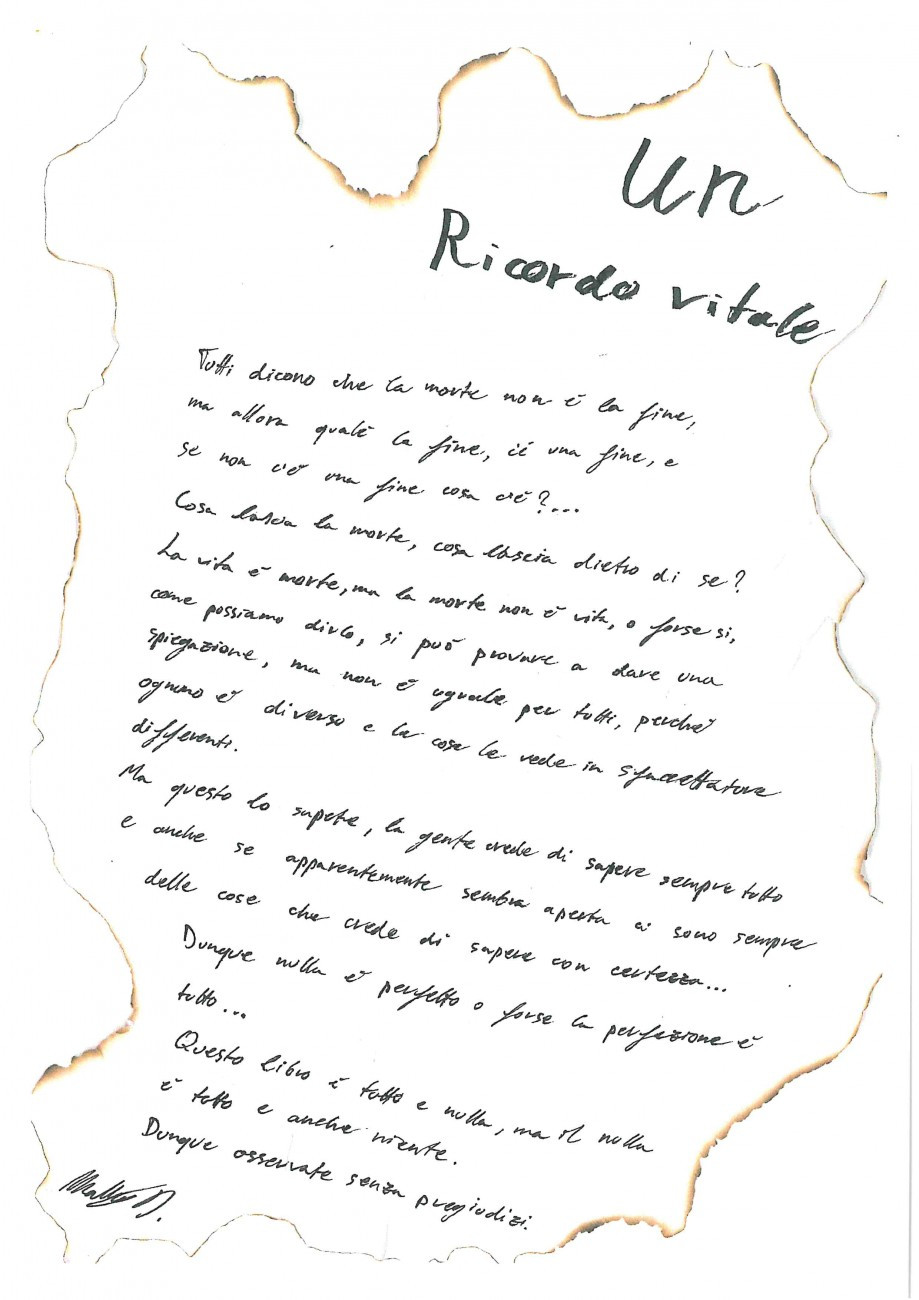 Un
Ricordo vitale
Tutti dicono che la morte non è la fine,
ma allora qualè la fine, c'é una fine, e
se non c'è una fine cosa c'è?...
Cosa lascia la morte, cosa lascia dietro di se?
La vita è morte, ma la morte non è vita, o forse si,
come possiamo dirlo, si può provare a dare una
spiegazione, ma non è uguale per tutti, perchè
ognuno è diverso e la cose le vede in sfaccettature
differenti.
Ma questo lo sapete, la gente crede di sapere sempre tutto
e anche se apparentemente sembra aperta ci sono sempre
delle cose che crede di sapere con certezza...
Dunque nulla è perfetto o forse la perfezione è
tutto...
Questo libro è tutto e nulla, ma il nulla
è tutto e anche niente.
Dunque osservate senza pregiudizi.